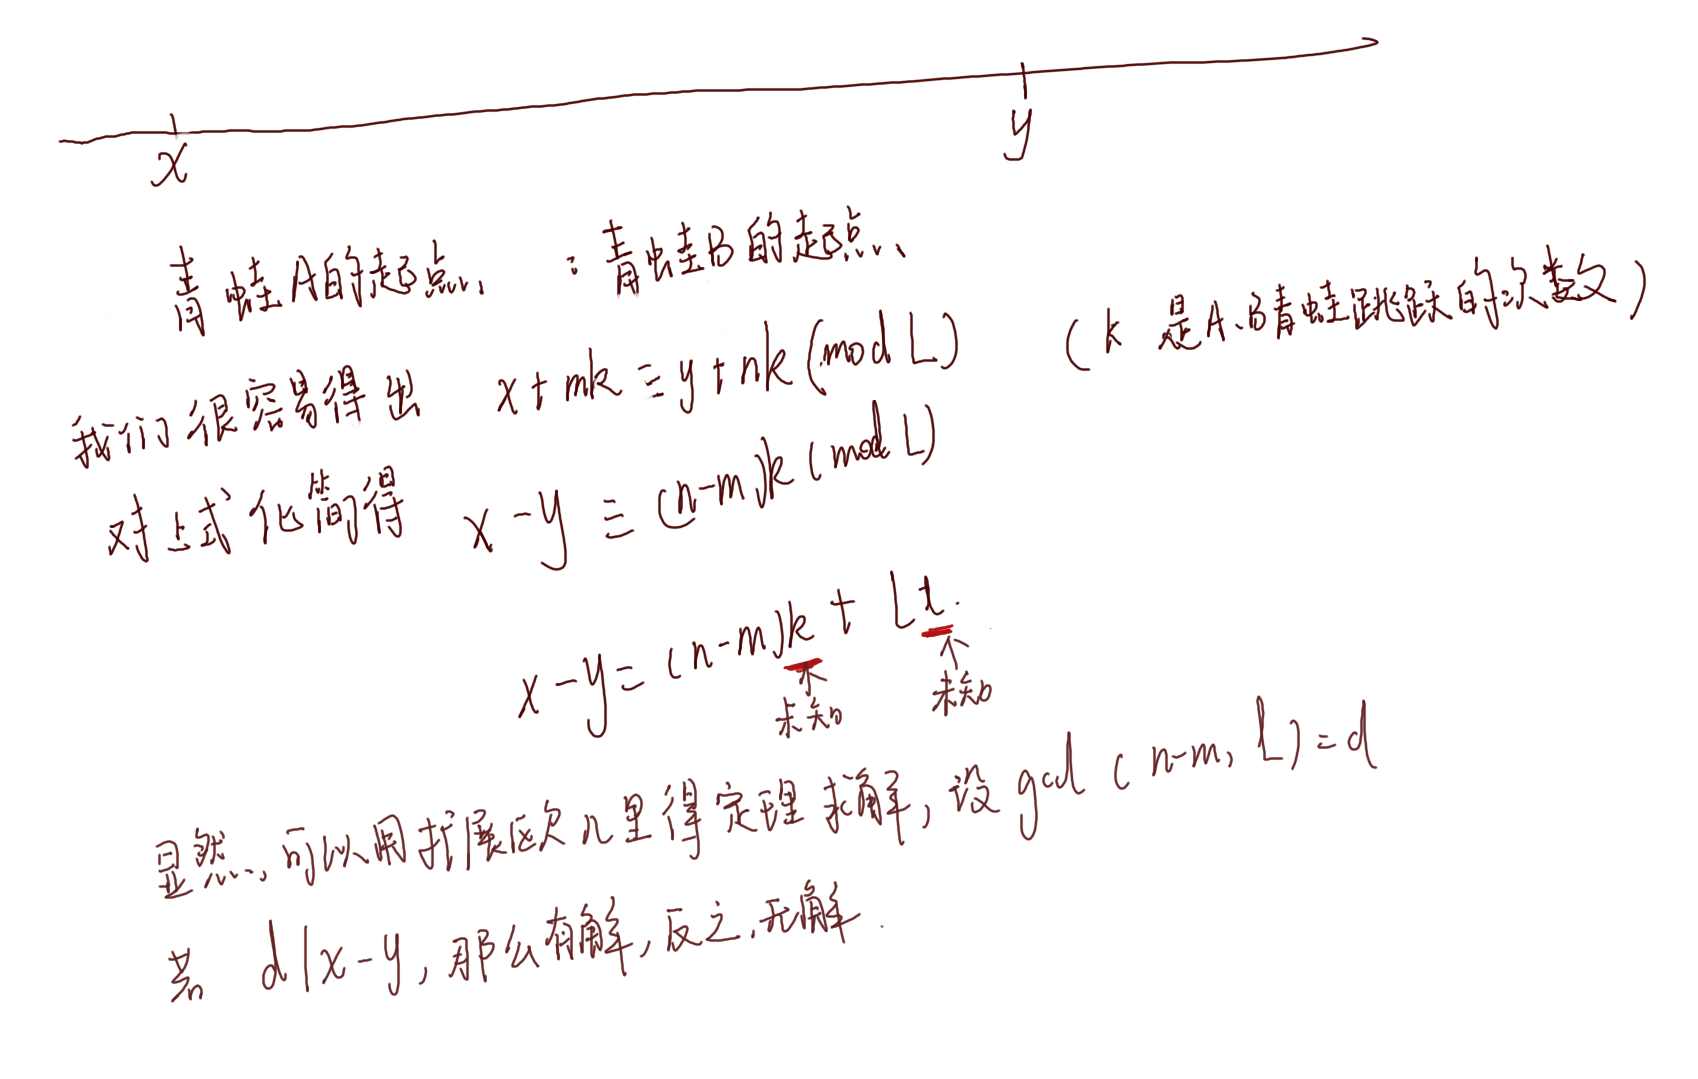 x y
青蛙A的起点、 : 青蛙B的起点、
我们很容易得出 x+mk≡y+nk(mod L) (k 是A、B青蛙跳跃的次数)
对上式化简得 x-y≡(n-m)k(mod L)
x-y=(n-m)k+Lt.
未知 未知
显然,可以用扩展欧几里得定理求解,设gcd(n-m,L)=d
若 d|x-y,那么有解,反之,无解.